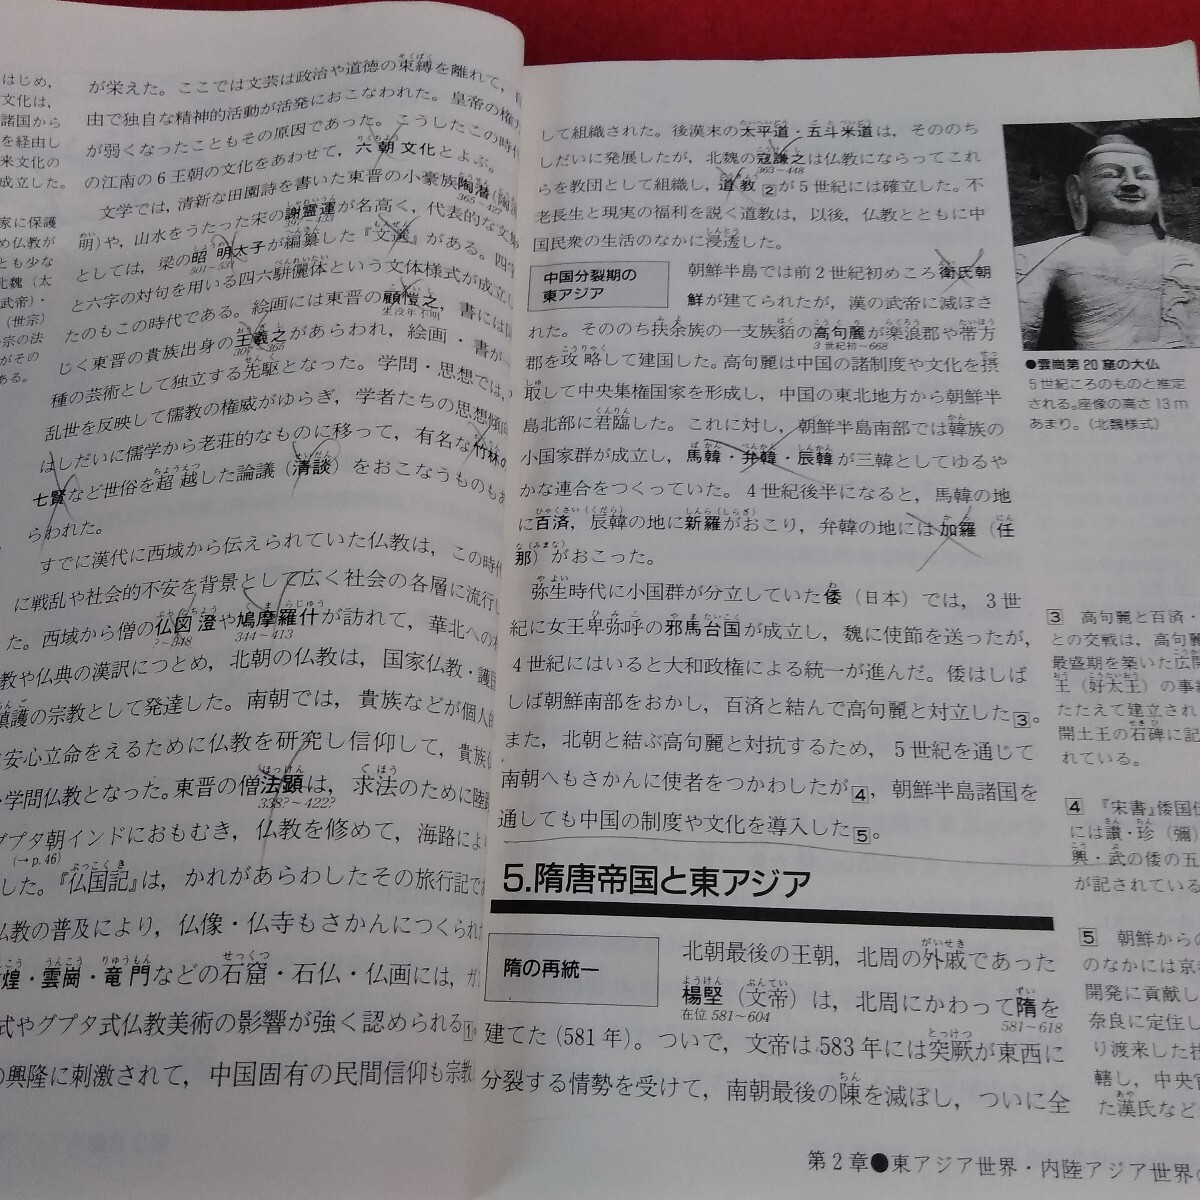 はじめ，
文化は，
諸国から
を経由し
来文化の
成立した。
家に保護
め仏教が
とも少な
北魏（太
武帝）・
（世宗
宗の法
がその
ある。
が栄えた。ここでは文芸は政治や道徳の束縛を離れて，自
由で独自な精神的活動が活発におこなわれた。皇帝の権力
が弱くなったこともその原因であった。こうしたこの時代
の江南の6王朝の文化をあわせて，六朝文化とよぶ。
文学では，清新な田園詩を書いた東晋の小豪族陶潜（陶淵
365～427
明）や，山水をうたった宋の謝霊運が名高く，代表的な文集
としては，梁の昭明太子が編纂した『文選』がある。四字
501～531
と六字の対句を用いる四六駢儷体という文体様式が成立し
たのもこの時代である。絵画には東晋の顧愷之，書には同
生没年不明
じく東晋の貴族出身の王羲之があらわれ，絵画・書が一
307～365
種の芸術として独立する先駆となった。学問・思想では，
乱世を反映して儒教の権威がゆらぎ，学者たちの思想傾向
はしだいに儒学から老荘的なものに移って，有名な竹林の
七賢など世俗を超越した論議（清談）をおこなうものもあ
らわれた。
すでに漢代に西域から伝えられていた仏教は，この時代
に戦乱や社会的不安を背景として広く社会の各層に流行し
た。西域から僧の仏図澄や鳩摩羅什が訪れて，華北への布
?～348
344～413
教や仏典の漢訳につとめ，北朝の仏教は，国家仏教・護国
鎮護の宗教として発達した。南朝では，貴族などが個人的
安心立命をえるために仏教を研究し信仰して，貴族仏
・学問仏教となった。東晋の僧法顕は，求法のために陸路
338?～422?
グプタ朝インドにおもむき，仏教を修めて，海路によ
(→p.46)
した。『仏国記』は，かれがあらわしたその旅行記であ
仏教の普及により，仏像・仏寺もさかんにつくられた
煌・雲崗・竜門などの石窟・石仏・仏画には，ガ
式やグプタ式仏教美術の影響が強く認められる1
の興隆に刺激されて，中国固有の民間信仰も宗教
して組織された。後漢末の太平道・五斗米道は，そののち
しだいに発展したが，北魏の寇謙之は仏教にならってこれ
363～448
らを教団として組織し，道教2が5世紀には確立した。不
老長生と現実の福利を説く道教は，以後，仏教とともに中
国民衆の生活のなかに浸透した。
中国分裂期の
東アジア
朝鮮半島では前2世紀初めころ衛氏朝
鮮が建てられたが，漢の武帝に滅ぼさ
れた。そののち扶余族の一支族貊の高句麗が楽浪郡や帯方
3世紀初～668
郡を攻略して建国した。高句麗は中国の諸制度や文化を摂
取して中央集権国家を形成し，中国の東北地方から朝鮮半
島北部に君臨した。これに対し，朝鮮半島南部では韓族の
小国家群が成立し，馬韓・弁韓・辰韓が三韓としてゆるや
かな連合をつくっていた。4世紀後半になると，馬韓の地
に百済，辰韓の地に新羅がおこり，弁韓の地には加羅（任
那）がおこった。
弥生時代に小国群が分立していた倭（日本）では，3世
紀に女王卑弥呼の邪馬台国が成立し，魏に使節を送ったが，
4世紀にはいると大和政権による統一が進んだ。倭はしば
しば朝鮮南部をおかし，百済と結んで高句麗と対立した3。
また，北朝と結ぶ高句麗と対抗するため，5世紀を通じて
南朝へもさかんに使者をつかわしたが4，朝鮮半島諸国を
通しても中国の制度や文化を導入した5。
5.隋唐帝国と東アジア
隋の再統一
北朝最後の王朝，北周の外戚であった
楊堅（文帝）は，北周にかわって隋を
在位 581～604
581～618
建てた（581年）。ついで，文帝は583年には突厥が東西に
分裂する情勢を受けて，南朝最後の陳を滅ぼし，ついに全
●雲崗第20窟の大仏
5世紀ころのものと推定
される。座像の高さ13m
あまり。（北魏様式）
3 高句麗と百済・
との交戦は，高句麗
最盛期を築いた広開
王（好太王）の事
たたえて建立され
開土王の石碑に記
れている。
4 『宋書』倭国伝
には讃・珍（彌）
興・武の倭の五
が記されている
5 朝鮮からの
のなかには京
開発に貢献し
奈良に定住し
り渡来した技
轄し，中央官
た漢氏など
第2章●東アジア世界・内陸アジア世界の